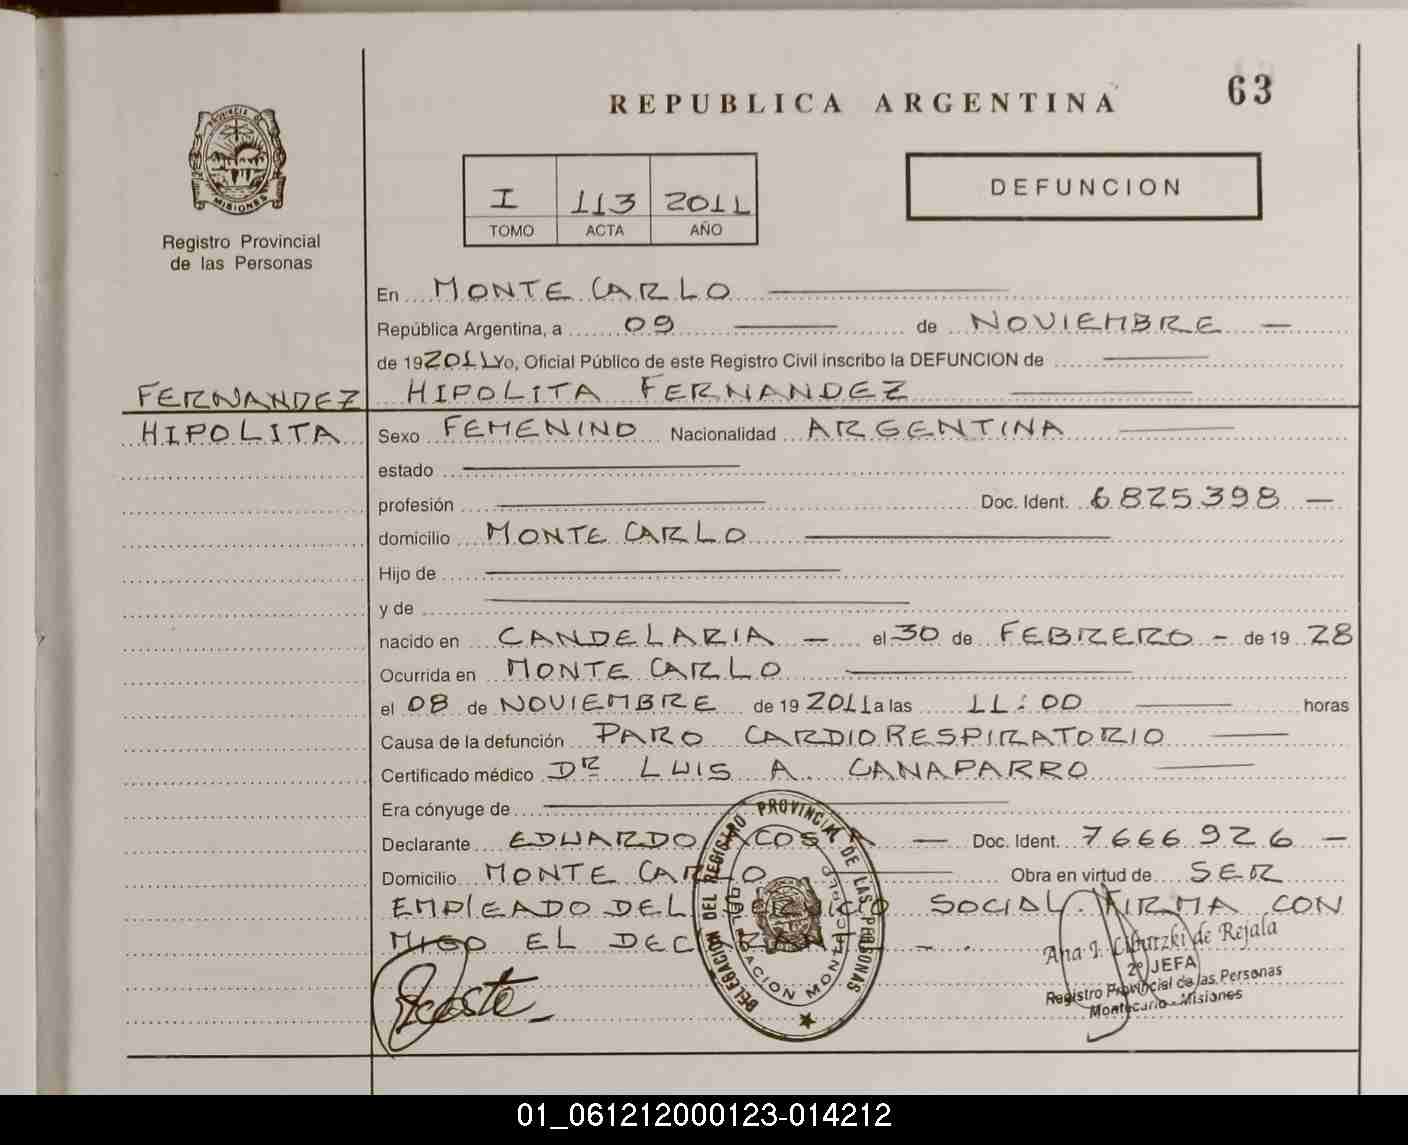 63
REPUBLICA ARGENTINA
PROVINCIA DE
MISIONES
Registro Provincial
de las Personas
DEFUNCION
I 113 2011
TOMO ACTA AÑO
En MONTE CARLO
República Argentina, a 09 de NOVIEMBRE
de 19 2011 Yo, Oficial Público de este Registro Civil inscribo la DEFUNCION de
FERNANDEZ HIPOLITA FERNANDEZ
HIPOLITA Sexo FEMENINO Nacionalidad ARGENTINA
estado
profesión Doc. Ident. 6825398
domicilio MONTE CARLO
Hijo de
y de
nacido en CANDELARIA el 30 de FEBRERO de 19 28
Ocurrida en MONTE CARLO
el 08 de NOVIEMBRE de 19 2011 a las 11:00 horas
Causa de la defunción PARO CARDIORESPIRATORIO
Certificado médico DR LUIS A. CANAPARRO
Era cónyuge de
Declarante EDUARDO ACOSTA Doc. Ident. 7666926
Domicilio MONTE CARLO Obra en virtud de SER
EMPLEADO DEL SERVICIO SOCIAL. FIRMA CON
MIGO EL DECLARANTE
DELEGACION DEL REGISTRO PROVINCIAL DE LAS PERSONAS
DELEGACION MONTECARLO
Ana I. de Rejala
2º JEFA
Registro Provincial de las Personas
Montecarlo - Misiones
01_061212000123-014212